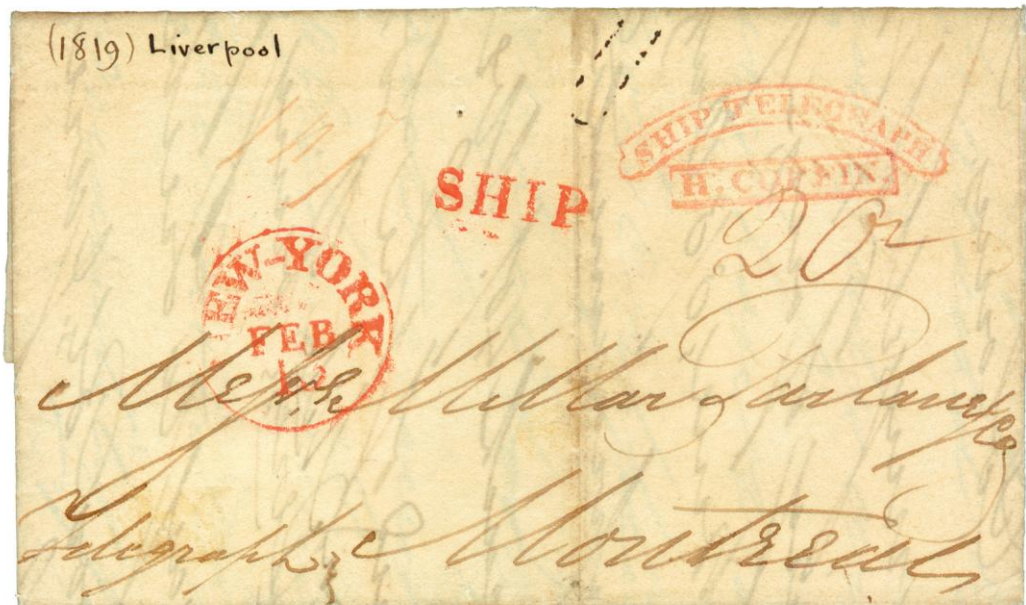 (1819) Liverpool
SHIP TELEGRAPH
H. COFFIN.
SHIP
20
NEW-YORK
FEB
12
Messrs Millar Parlane & Co
Telegraph
Montreal